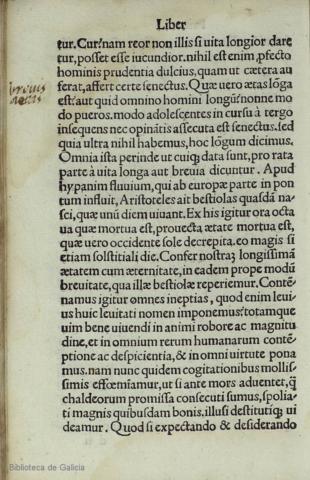 Liber
tur. Cur? nam reor non illis si uita longior dare
tur, posset esse iucundior. nihil est enim ꝓfecto
hominis prudentia dulcius, quam ut cætera au
ferat, affert certe senectus. Quæ uero ætas lõga
est? aut quid omnino homini longũ? nonne mo
do pueros. modo adolescentes in cursu à tergo
insequens nec opinãtis assecuta est senectus. sed
quia ultra nihil habemus, hoc lõgum dicimus.
Omnia ista perinde ut cuiqꝫ data sunt, pro rata
parte à uita longa aut breuia dicuntur. Apud
hypanim fluuium, qui ab europæ parte in pon
tum influit, Aristoteles ait bestiolas quasdã na-
sci, quæ unũ diem uiuant. Ex his igitur ora octa
ua quæ mortua est, prouecta ætate mortua est,
quæ uero occidente sole decrepita. eo magis si
etiam solstitiali die. Confer nostraꝫ longissimã
ætatem cum æternitate, in eadem prope modũ
breuitate, qua illæ bestiolæ reperiemur. Contẽ-
namus igitur omnes ineptias, quod enim leuiu
us huic leuitati nomen imponemus? totamque
uim bene uiuendi in animi robore ac magnitu
dine, et in omnium rerum humanarum contẽ-
ptione ac despicientia, & in omni uirtute pona
mus. nam nunc quidem cogitationibus mollis-
simis effœmiamur, ut si ante mors aduentet, q̃
chaldeorum promissa consecuti sumus, spolia-
ti magnis quibusdam bonis, illusi destitutiqꝫ ui
deamur. Quod si expectando & desiderando
breuis
ætas
Biblioteca de Galicia